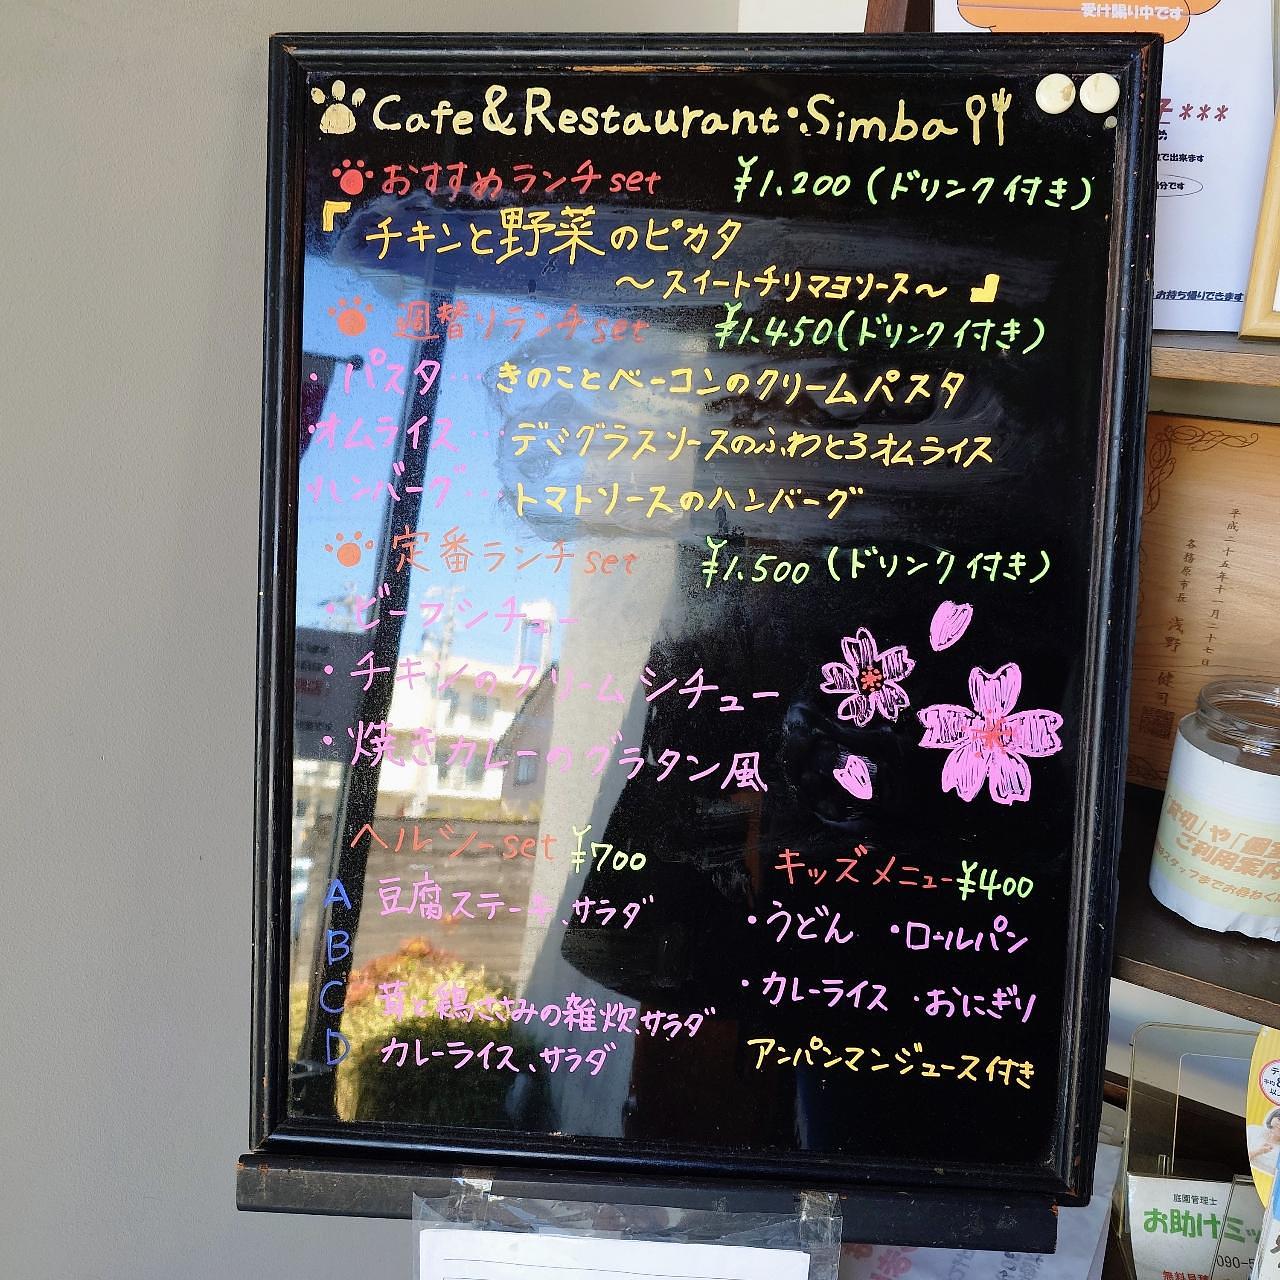 Cafe&Restaurant・Simba
おすすめランチset ¥1.200(ドリンク付き)
「チキンと野菜のピカタ
～スイートチリマヨソース～」
週替りランチset ¥1.450(ドリンク付き)
・パスタ…きのことベーコンのクリームパスタ
・オムライス…デミグラスソースのふわとろオムライス
・ハンバーグ…トマトソースのハンバーグ
定番ランチset ¥1.500(ドリンク付き)
・ビーフシチュー
・チキンのクリームシチュー
・焼きカレーのグラタン風
ヘルシーset ¥700
A 豆腐ステーキ、サラダ
B
C 茸と鶏ささみの雑炊、サラダ
D カレーライス、サラダ
キッズメニュー ¥400
・うどん ・ロールパン
・カレーライス ・おにぎり
アンパンマンジュース付き
受け賜り中です
***
で出来ます
お持ち帰りできます
平成二十五年十一月二十七日
各務原市長 浅野 健司
「貸切」や「個室
ご利用案内
庭園管理士
お助けミッ
090-5